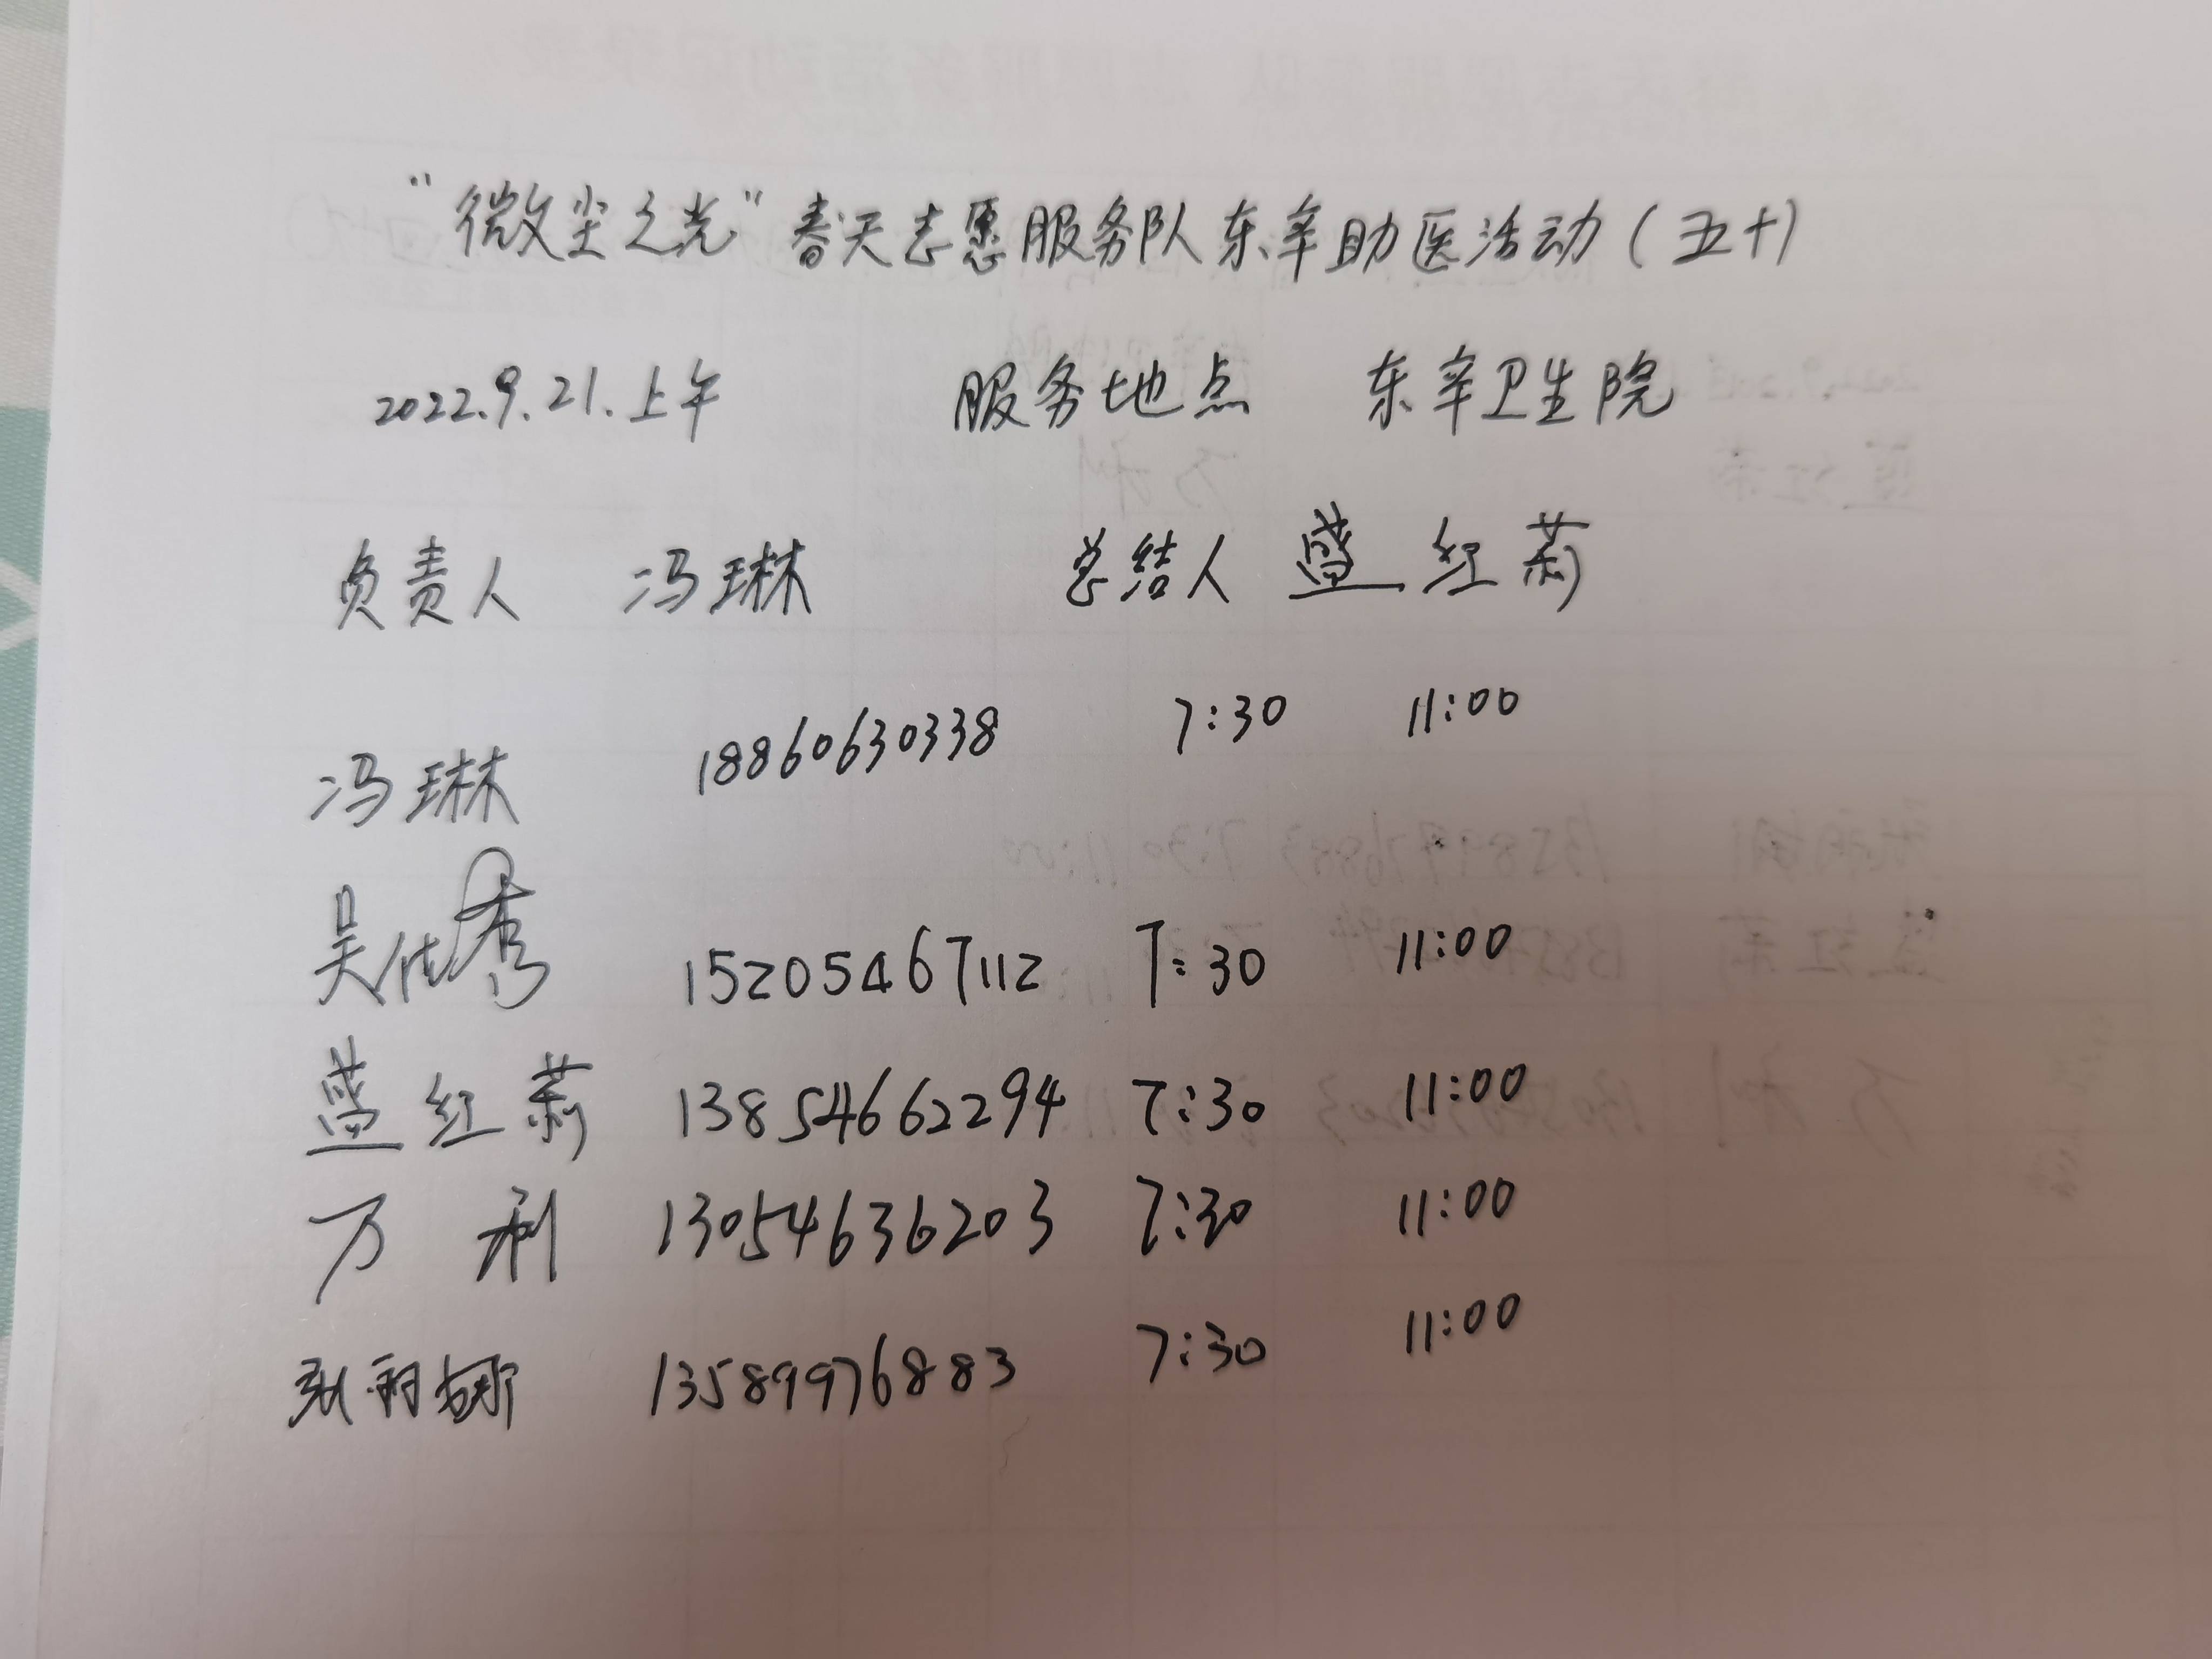 “微尘之光”春天志愿服务队东辛助医活动（五十）
2022.9.21.上午 服务地点 东辛卫生院
负责人 冯琳 总结人 蓝红莉
冯琳 18860630338 7:30 11:00
吴佳秀 15205467112 7:30 11:00
蓝红莉 13854662294 7:30 11:00
万利 13054636203 7:30 11:00
张莉娜 13589976883 7:30 11:00